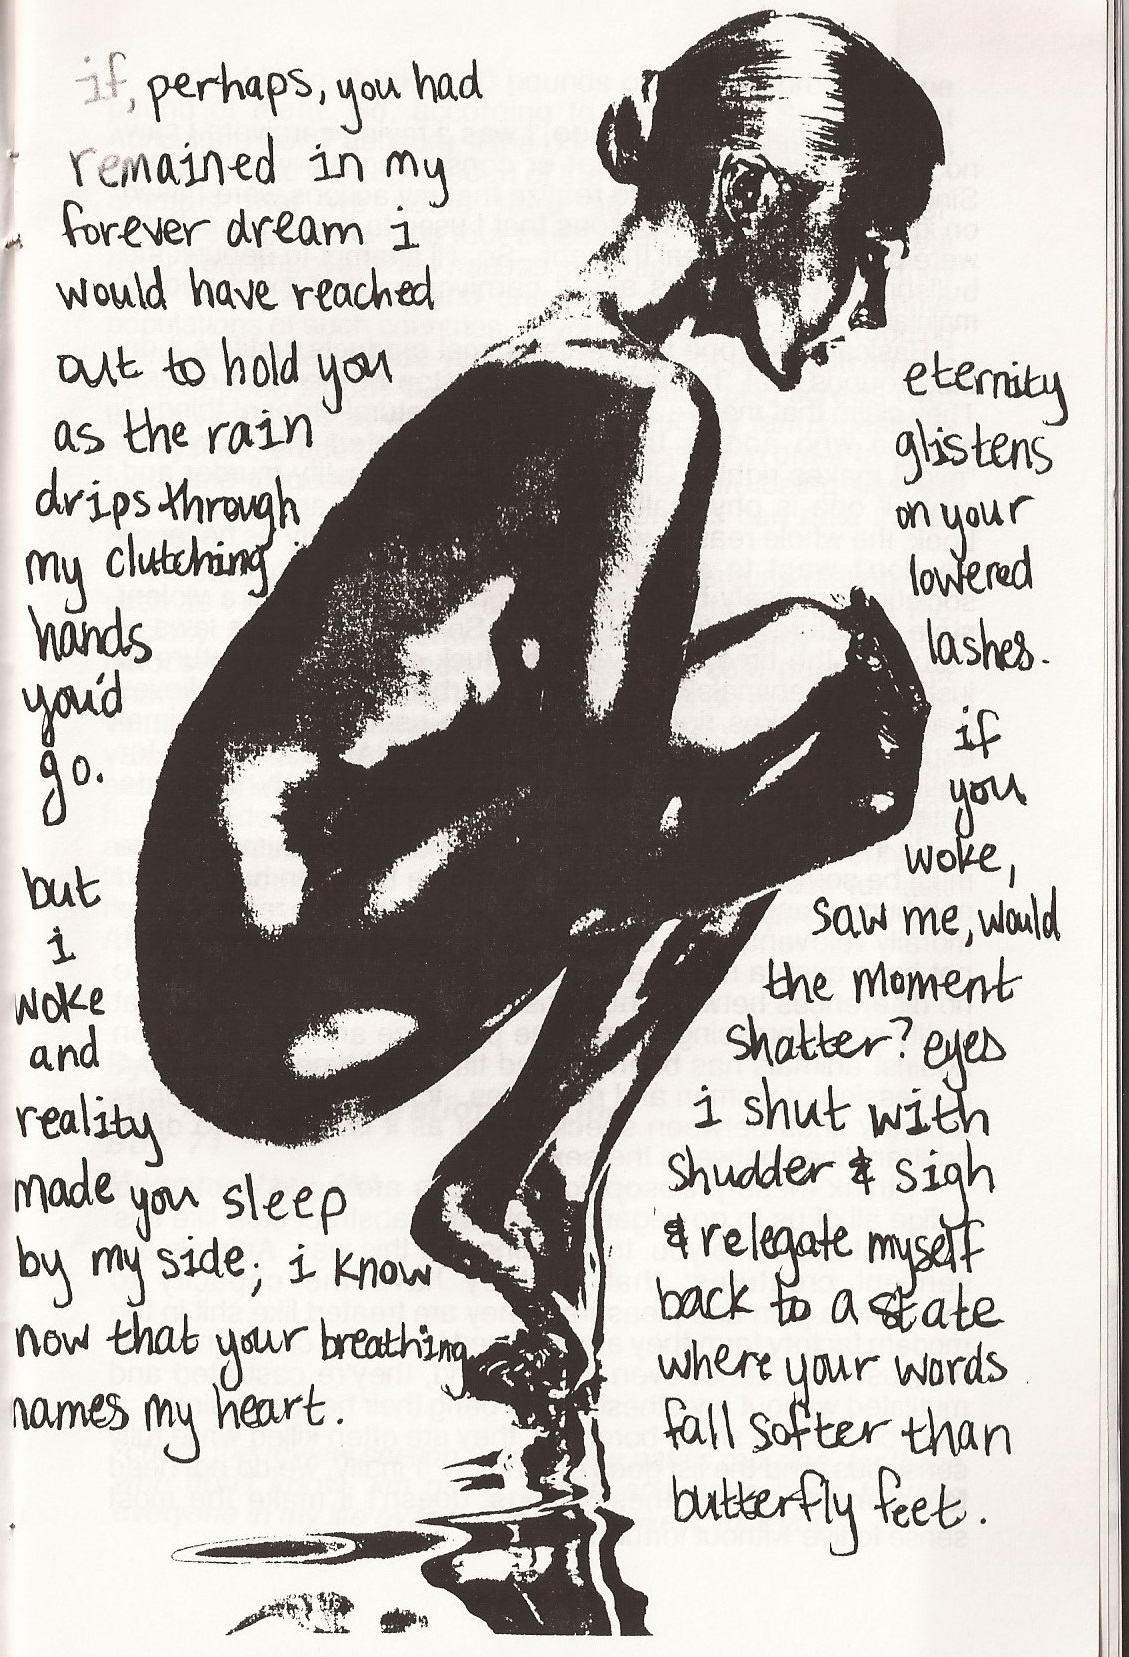 if, perhaps, you had
remained in my
forever dream i
would have reached
out to hold you
as the rain
drips through
my clutching
hands
you'd
go.
but
i
woke
and
reality
made you sleep
by my side; i know
now that your breathing
names my heart.
eternity
glistens
on your
lowered
lashes.
if
you
woke,
saw me, would
the moment
shatter? eyes
i shut with
shudder & sigh
& relegate myself
back to a state
where your words
fall softer than
butterfly feet.